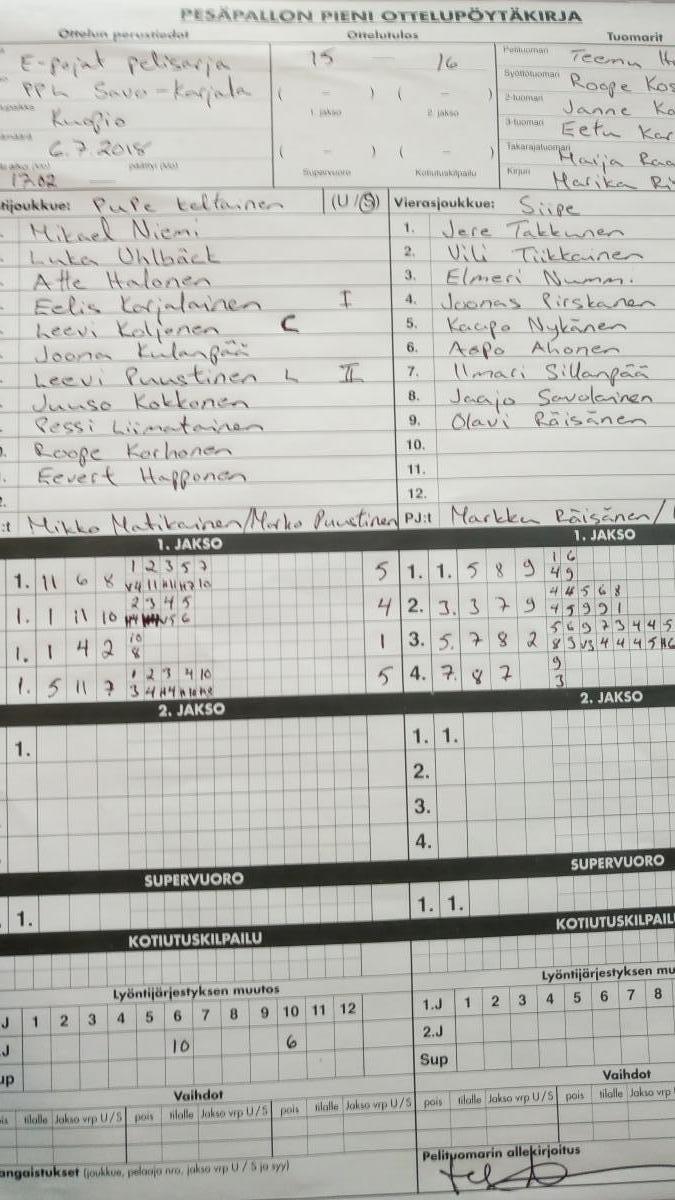 PESÄPALLON PIENI OTTELUPÖYTÄKIRJA
Ottelun perustiedot Ottelutulos Tuomarit
E-pojat pelisarja 15 — 16 Pelituomari Teemu
PPL Savo-Karjala ( – ) ( – ) Syöttötuomari Roope
1. jakso 2. jakso 2-tuomari Janne
Kuopio 3-tuomari Eetu
6.7.2018 ( – ) ( – ) Takarajatuomari Maija
17.02 — päättyi (klo) Supervuoro Kotiutuskilpailu Kirjuri Marika
tijoukkue: PuPe keltainen (U/S) Vierasjoukkue: Siipe
Mikael Niemi 1. Jere Takkunen
Luka Uhlbäck 2. Vili Tiikkainen
Atte Halonen 3. Elmeri Nummi
Eelis Karjalainen I 4. Joonas Pirskanen
Leevi Koljonen C 5. Kaapo Nykänen
Joona Kulanpää 6. Aapo Ahonen
Leevi Puustinen L II 7. Ilmari Sillanpää
Juuso Kokkonen 8. Jaajo Savolainen
Pessi Liimatainen 9. Olavi Räisänen
Roope Korhonen 10.
Eevert Happonen 11.
12.
:t Mikko Matikainen/Marko Puustinen PJ:t Markku Räisänen/
1. JAKSO 1. JAKSO
1 2 3 5 7 1 6
1. 11 6 8 5 1. 1. 5 8 9 4 9
2 3 4 5 4 4 5 6 8
1. 1 11 10 4 2. 3. 3 7 9 4 5 9 9 1
10 5 6 9 7 3 4 4 5
1. 1 4 2 8 1 3. 5. 7 8 2
1 2 3 4 10 9
1. 5 11 7 5 4. 7. 8 7 3
2. JAKSO 2. JAKSO
1. 1. 1.
2.
3.
4.
SUPERVUORO SUPERVUORO
1. 1. 1.
KOTIUTUSKILPAILU KOTIUTUSKILPAIL
Lyöntijärjestyksen muutos Lyöntijärjestyksen mu
J 1 2 3 4 5 6 7 8 9 10 11 12 1.J 1 2 3 4 5 6 7 8
.J 10 6 2.J
up Sup
Vaihdot Vaihdot
is tilalle Jakso vrp U/S pois tilalle Jakso vrp U/S pois tilalle Jakso vrp U/S pois tilalle Jakso vrp U/S pois tilalle Jakso vrp
angaistukset (joukkue, pelaaja nro, jakso vrp U / S ja syy) Pelituomarin allekirjoitus